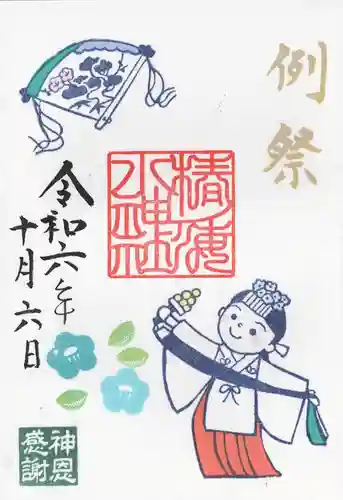 例祭
椿海
水神社
令和六年
十月六日
神恩
感謝